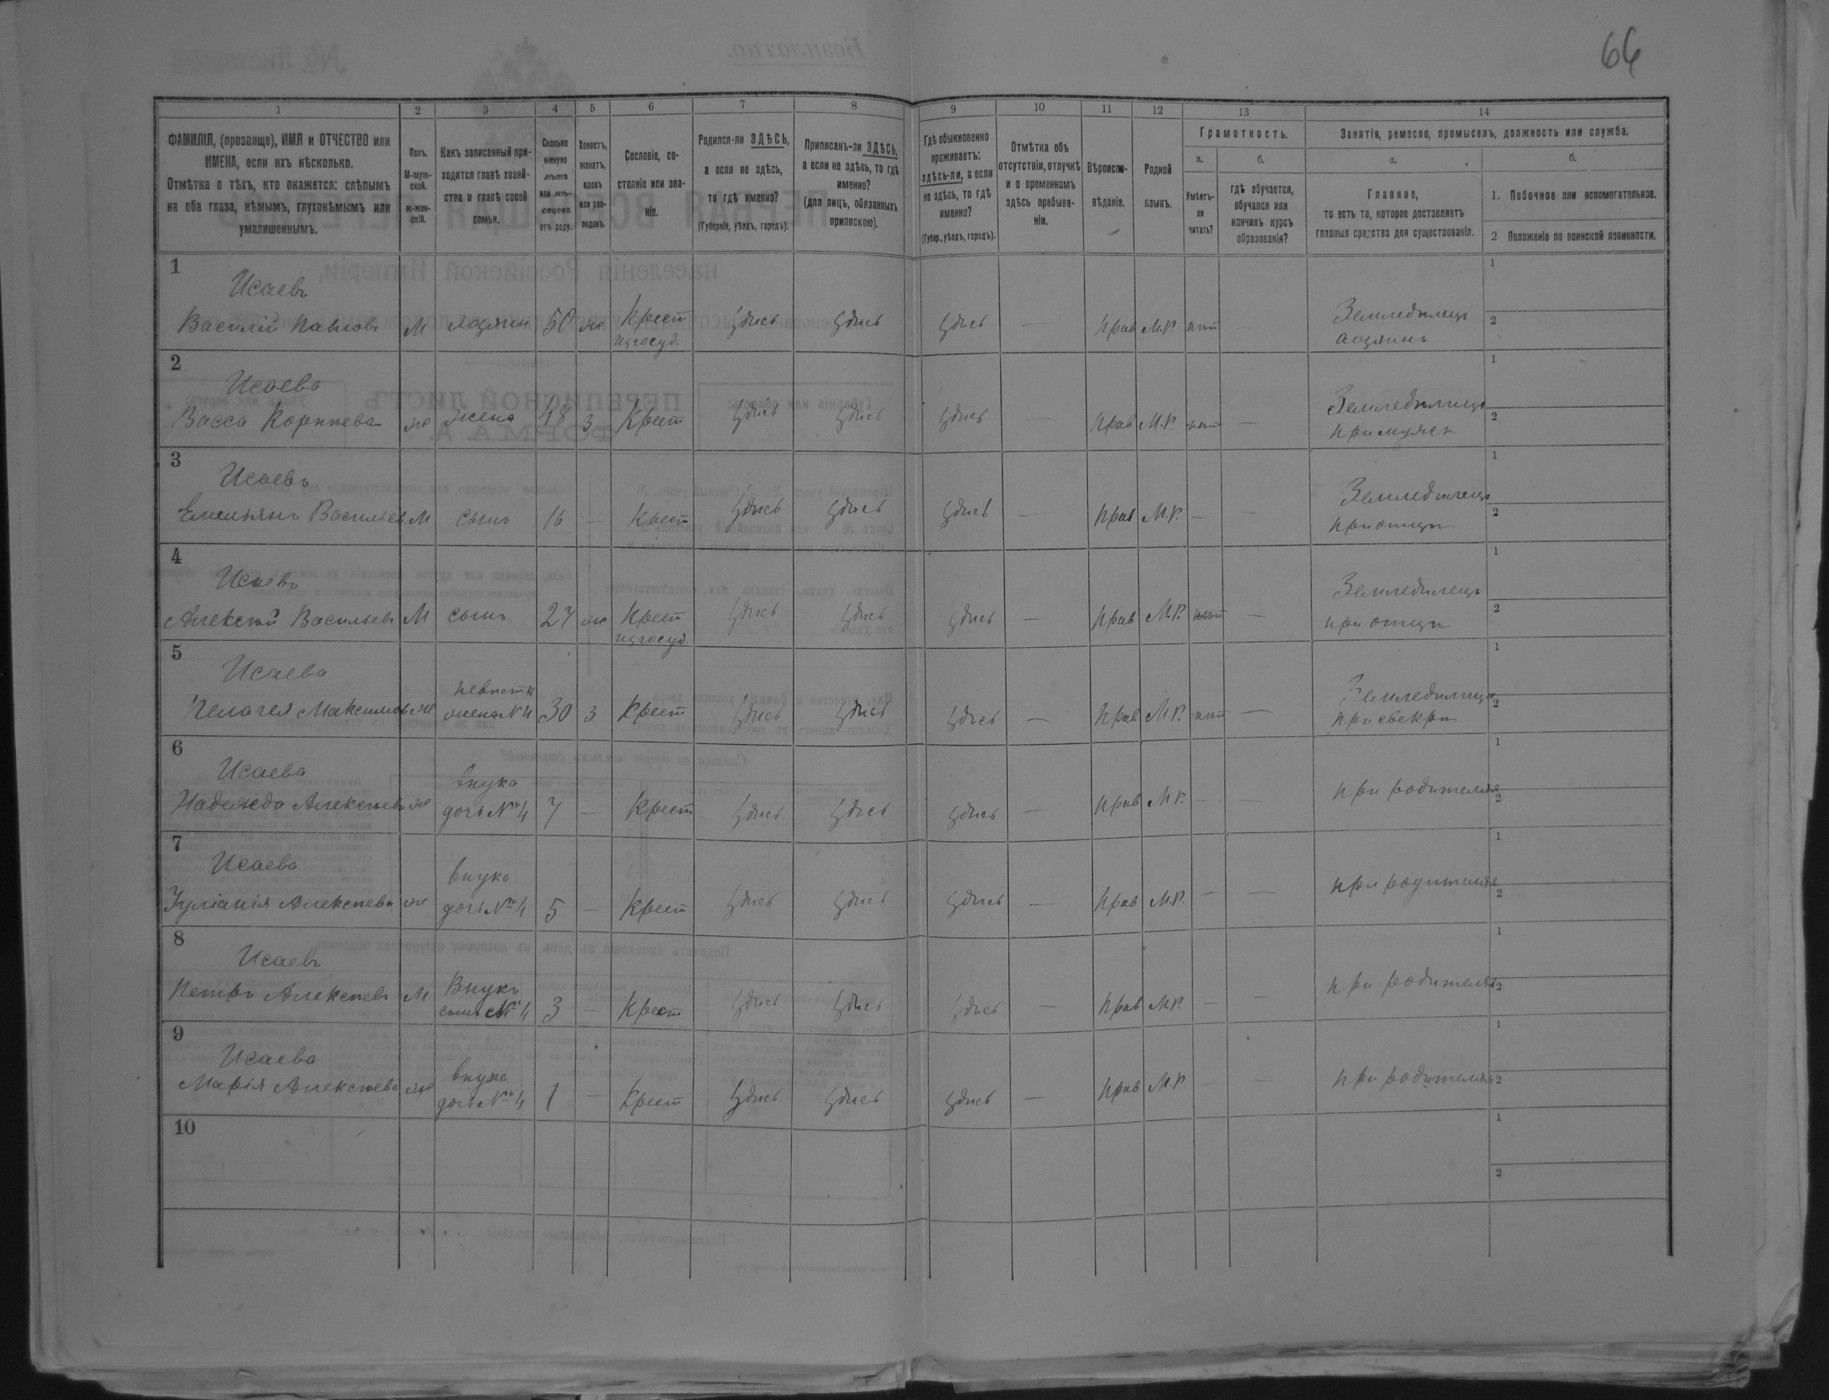 66
1 2 3 4 5 6 7 8 9 10 11 12 13 14
ФАМИЛІЯ, (прозвище), ИМЯ и ОТЧЕСТВО или
ИМЕНА, если ихъ нѣсколько.
Отмѣтка о тѣхъ, кто окажется: слѣпымъ
на оба глаза, нѣмымъ, глухонѣмымъ или
умалишеннымъ.
Полъ.
М-муж-
ской.
ж-жен-
скій.
Какъ записанный при-
ходится главѣ хозяй-
ства и главѣ своей
семьи.
Сколько
минуло
лѣтъ
или мѣ-
сяцевъ
отъ роду.
Холостъ,
женатъ,
вдовъ
или раз-
веденъ.
Сословіе, со-
стояніе или зва-
ніе.
Родился-ли ЗДѢСЬ,
а если не здѣсь,
то гдѣ именно?
(Губернія, уѣздъ, городъ).
Приписанъ-ли ЗДѢСЬ,
а если не здѣсь, то гдѣ
именно?
(для лицъ, обязанныхъ
припискою).
Гдѣ обыкновенно
проживаетъ:
здѣсь-ли, а если
не здѣсь, то гдѣ
именно?
(Губер., уѣздъ, городъ).
Отмѣтка объ
отсутствіи, отлучкѣ
и о временномъ
здѣсь пребыва-
ніи.
Вѣроиспо-
вѣданіе.
Родной
языкъ.
Грамотность.
а.
Умѣетъ-
ли
читать?
б.
гдѣ обучается,
обучался или
кончилъ курсъ
образованія?
Занятія, ремесло, промыселъ, должность или служба.
а.
Главное,
то есть то, которое доставляетъ
главныя средства для существованія.
б.
1. Побочное или вспомогательное.
2 Положеніе по воинской повинности.
1
Исаевъ
Василій Павловъ М хозяинъ 50 ж Крест здись здись здись — прав М.Р. нит — Земледилец 1
изгосуд. хозяинъ 2
2
Исаева
Васса Корнпева ж жена 48 З Крест здись здись здись — прав М.Р. нит — Земледилица 1
при мужи 2
3
Исаевъ
Емельянъ Васильев М сынъ 16 — Крест здись здись здись — прав М.Р. — — Земледилец 1
при отци 2
4
Исаевъ
Алексий Васильев М сынъ 27 ж Крест здись здись здись — прав М.Р. нит — Земледилец 1
изгосуд. при отци 2
5
Исаева
Пелагея Максимов ж невистк 30 З Крест здись здись здись — прав М.Р. нит — Земледилица 1
жена № 4 при свекри 2
6
Исаева
Надежда Алексиев ж внука 7 — Крест здись здись здись — прав М.Р. — — при родителях 1
дочь № 4 2
7
Исаева
Іуліанія Алексиева ж внука 5 — Крест здись здись здись — прав М.Р. — — при родителях 1
дочь № 4 2
8
Исаевъ
Петръ Алексиев М Внукъ 3 — Крест здись здись здись — прав М.Р. — — при родителях 1
сынъ № 4 2
9
Исаева
Марія Алексиева ж внука 1 — Крест здись здись здись — прав М.Р. — — при родителях 1
дочь № 4 2
10
1
2